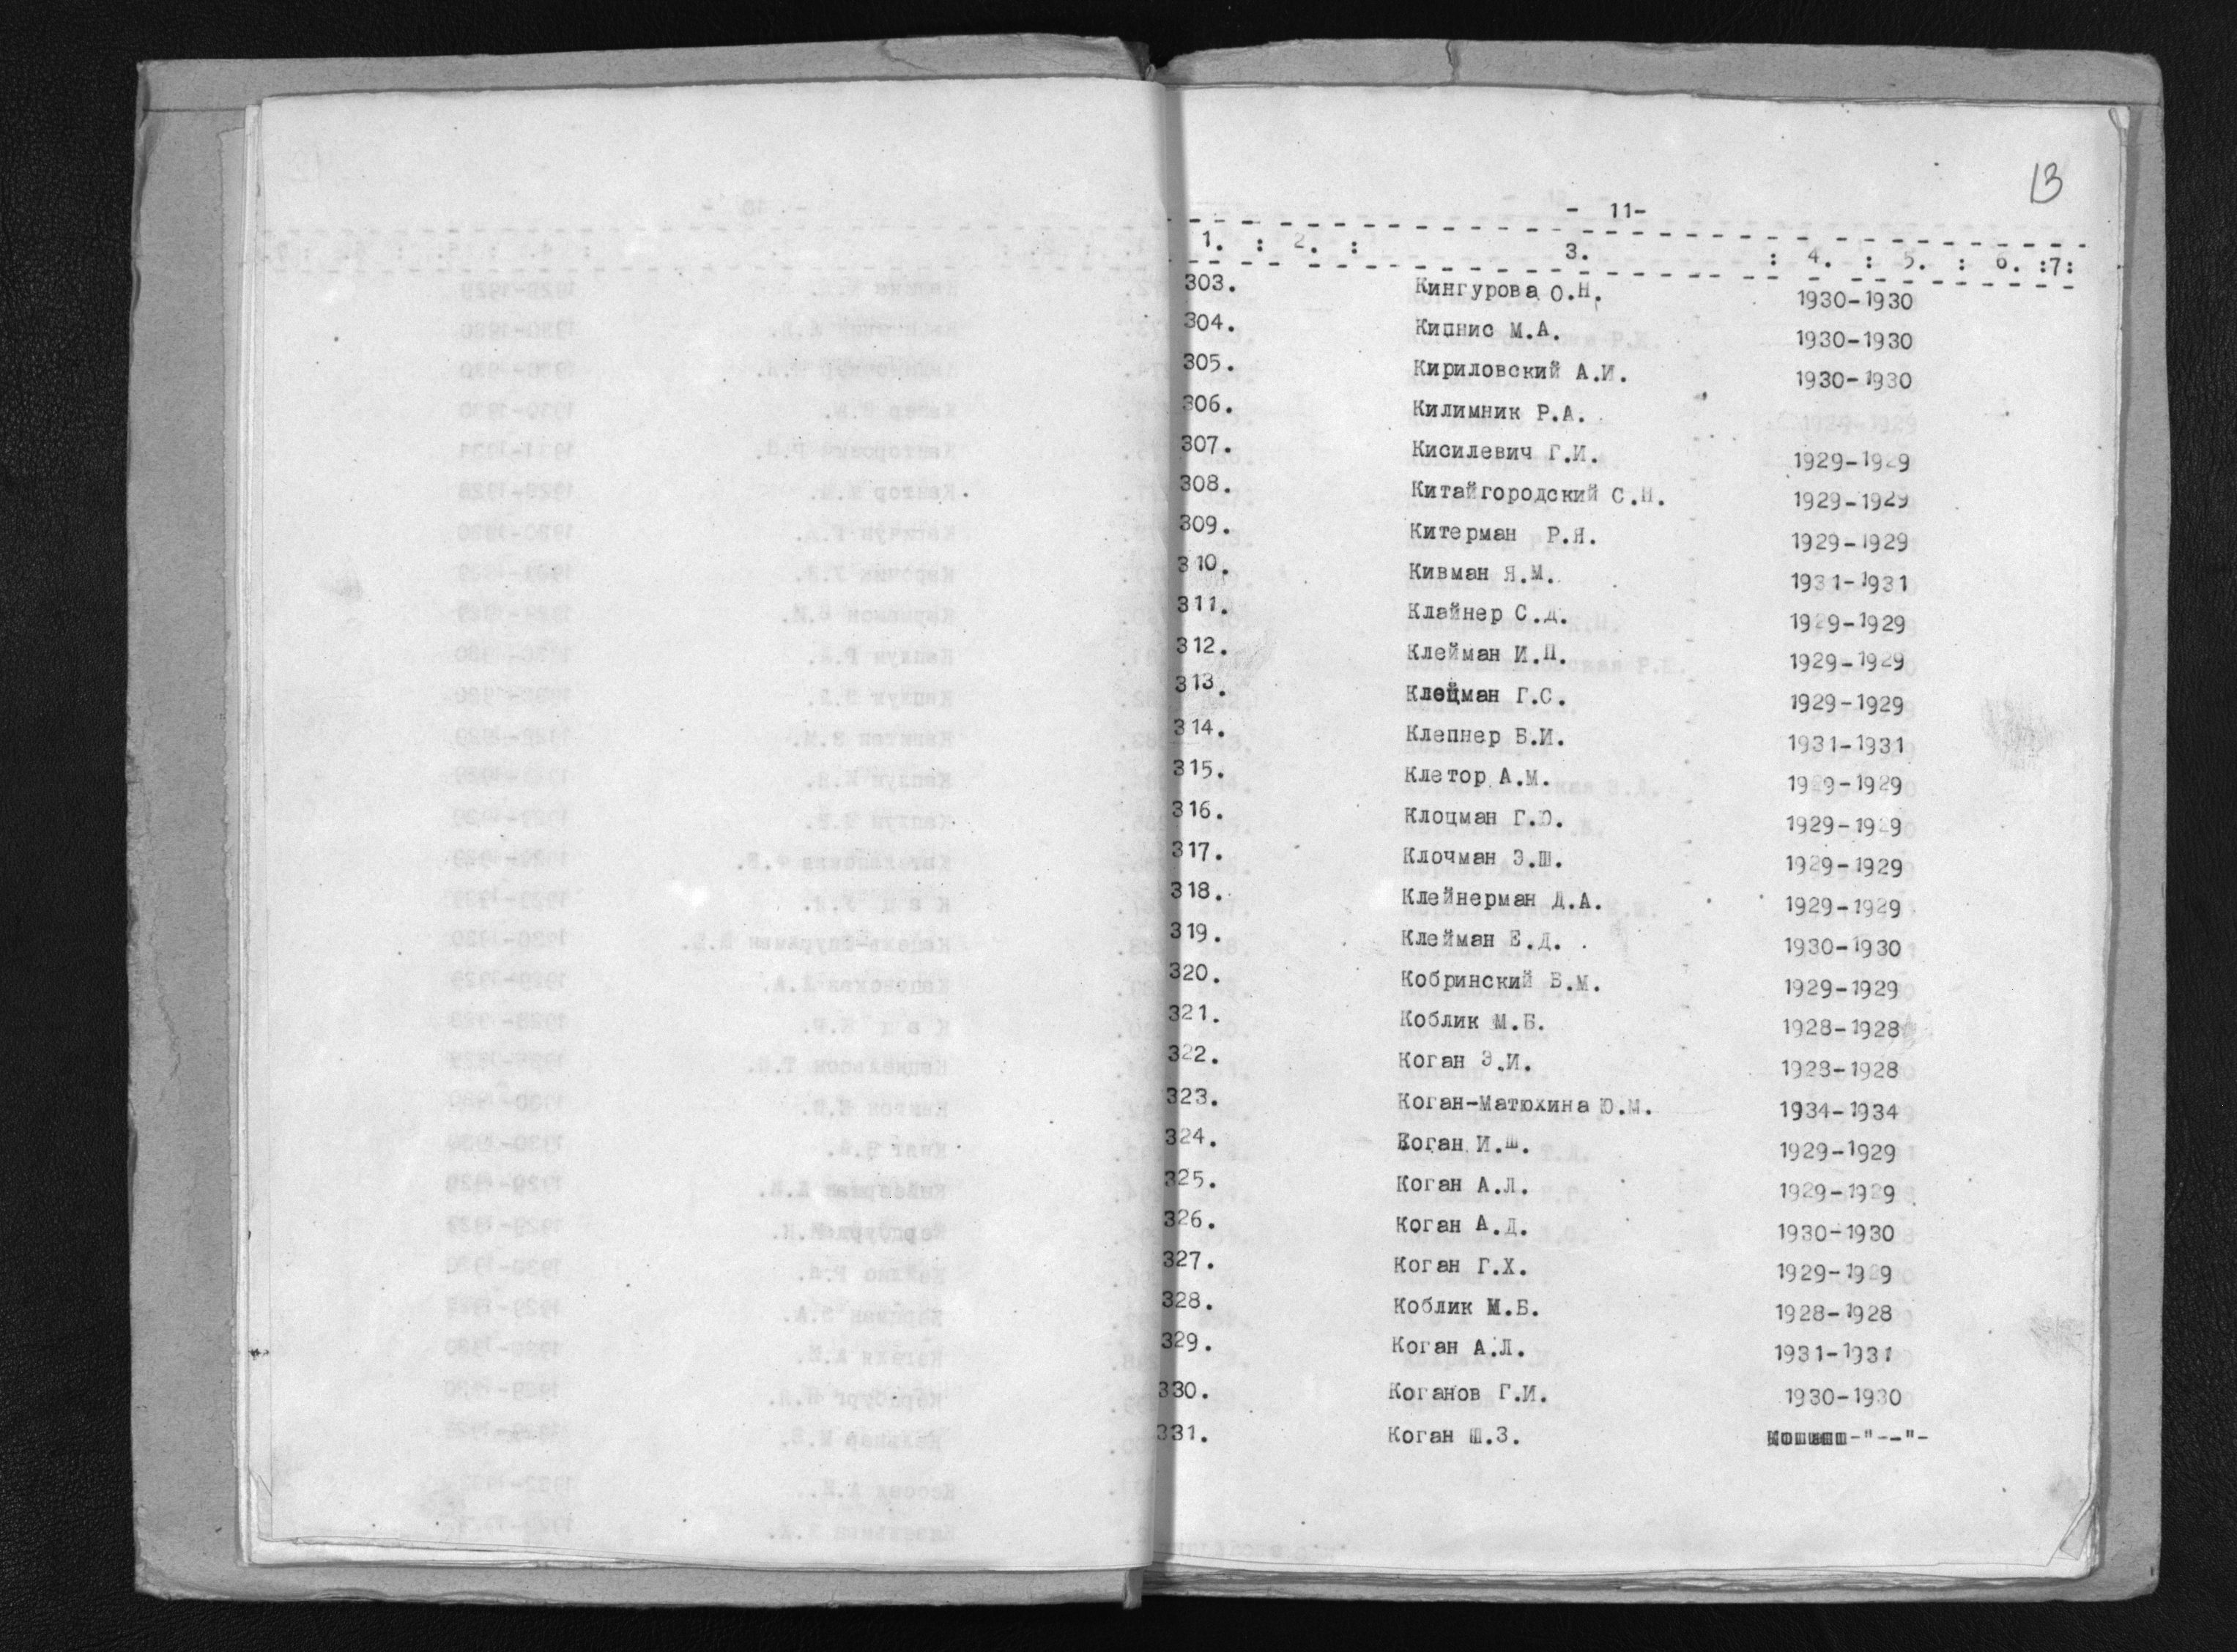 13
- 11-
1. : 2. : 3. : 4. : 5. : 6. :7:
303. Кингурова О.Н. 1930-1930
304. Кипнис М.А. 1930-1930
305. Кириловский А.И. 1930-1930
306. Килимник Р.А.
307. Кисилевич Г.И. 1929-1929
308. Китайгородский С.Н. 1929-1929
309. Китерман Р.Я. 1929-1929
310. Кивман Я.М. 1931-1931
311. Клайнер С.Д. 1929-1929
312. Клейман И.Ц. 1929-1929
313. Клоцман Г.С. 1929-1929
314. Клепнер Б.И. 1931-1931
315. Клетор А.М. 1929-1929
316. Клоцман Г.О. 1929-1929
317. Клочман Э.Ш. 1929-1929
318. Клейнерман Д.А. 1929-1929
319. Клейман Е.Д. 1930-1930
320. Кобринский Б.М. 1929-1929
321. Коблик М.Б. 1928-1928
322. Коган Э.И. 1928-1928
323. Коган-Матюхина Ю.М. 1934-1934
324. Коган И.Ш. 1929-1929
325. Коган А.Л. 1929-1929
326. Коган А.Д. 1930-1930
327. Коган Г.Х. 1929-1929
328. Коблик М.Б. 1928-1928
329. Коган А.Л. 1931-1931
330. Коганов Г.И. 1930-1930
331. Коган Ш.З. -"--"-